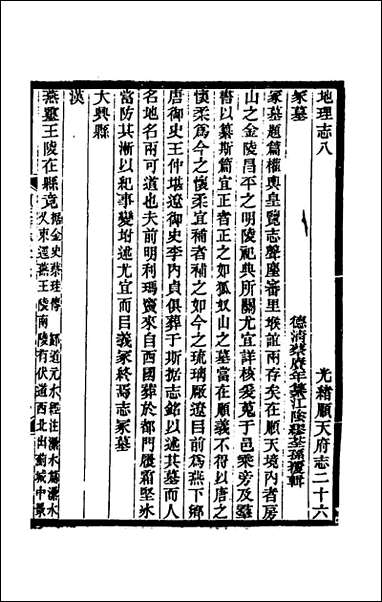 地理志八　光緒順天府志二十六
冢墓　德清蔡賡年纂江陰繆荃孫覆輯
冢墓題篇權輿皇覽志聲塋審里堠誼兩存矣在順天境內者房
山之金陵昌平之明陵祀典所關尤宜詳核爰蒐于邑乘旁及羣
書以纂斯篇宜正者正之如狐奴山之墓當在順義不得以唐之
懷柔爲今之懷柔宜補者補之如今之琉璃厰遼目前爲燕下鄉
唐御史王仲堪遼御史李內貞俱葬于斯據志銘以述其墓而人
名地名兩可道也夫前明利瑪竇來自西國葬於都門履霜堅冰
當防其漸以紀事變坿述尤宜而目義冢終焉志冢墓
大興縣
漢
燕靈王陵在縣竟據金史蔡珪傳　酈道元水經注㶟水爲灅水
又東逕燕王陵南陵有伏道西北出薊城中景